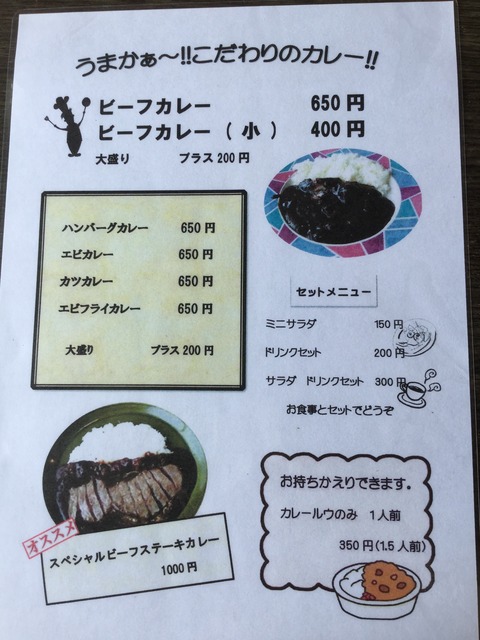 うまかぁ～!!こだわりのカレー!!
ビーフカレー 650円
ビーフカレー（小） 400円
大盛り プラス200円
ハンバーグカレー 650円
エビカレー 650円
カツカレー 650円
エビフライカレー 650円
大盛り プラス200円
セットメニュー
ミニサラダ 150円
ドリンクセット 200円
サラダ ドリンクセット 300円
お食事とセットでどうぞ
オススメ
スペシャルビーフステーキカレー
1000円
お持ちかえりできます。
カレールウのみ 1人前
350円(1.5人前)